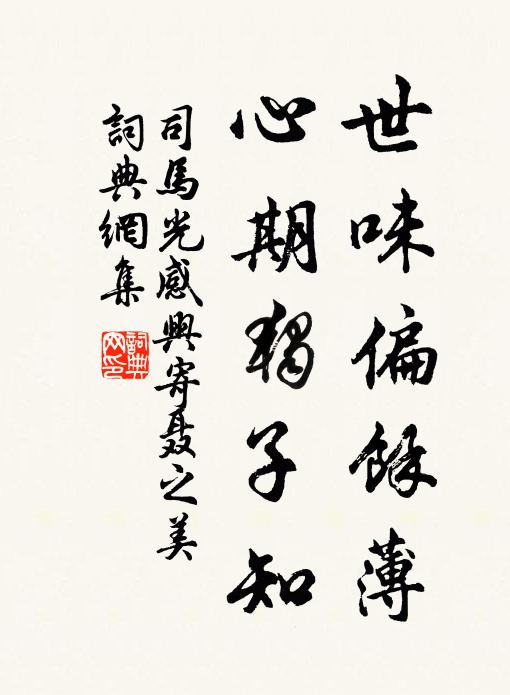 世味偏餘薄
心期獨子知
司馬光感興寄聶之美
詞典網集
詞典
网印